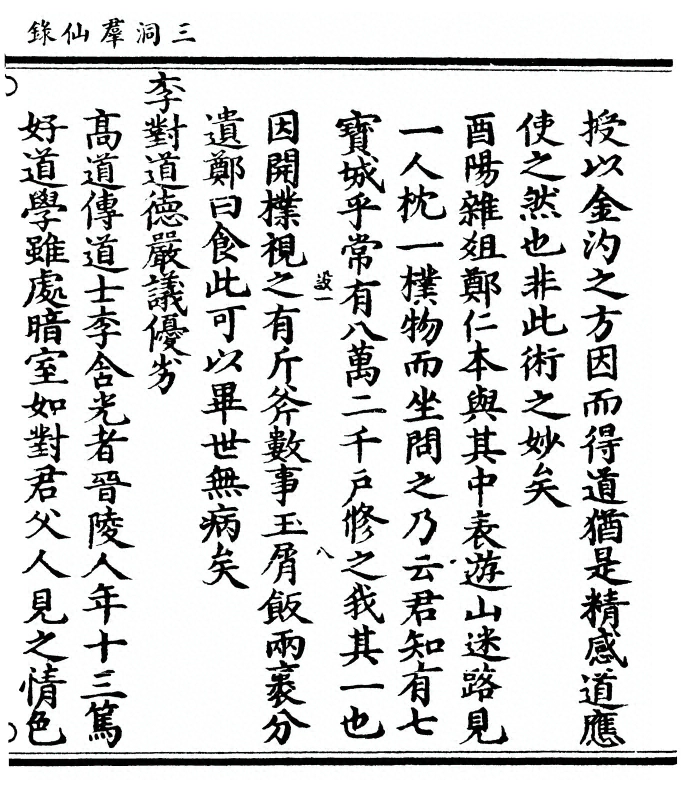 三洞羣仙錄
授以金汋之方因而得道猶是精感道應
使之然也非此術之妙矣
酉陽雜俎鄭仁本與其中表遊山迷路見
一人枕一襆物而坐問之乃云君知有七
寶城乎常有八萬二千戶修之我其一也
因開襆視之有斤斧數事玉屑飯兩裹分
遺鄭曰食此可以畢世無病矣
李對道德嚴議優劣
高道傳道士李含光者晉陵人年十三篤
好道學雖處暗室如對君父人見之情色
設一
八